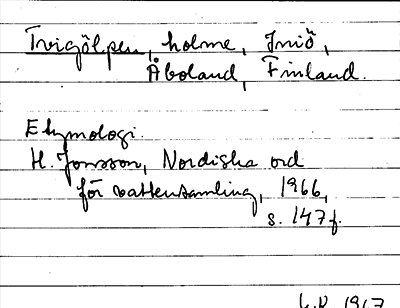 Trigölpen, holme, Iniö,
Åboland, Finland.
Etymologi.
H. Jonsson, Nordiska ord
för vattensamling, 1966,
s. 147f.
1967